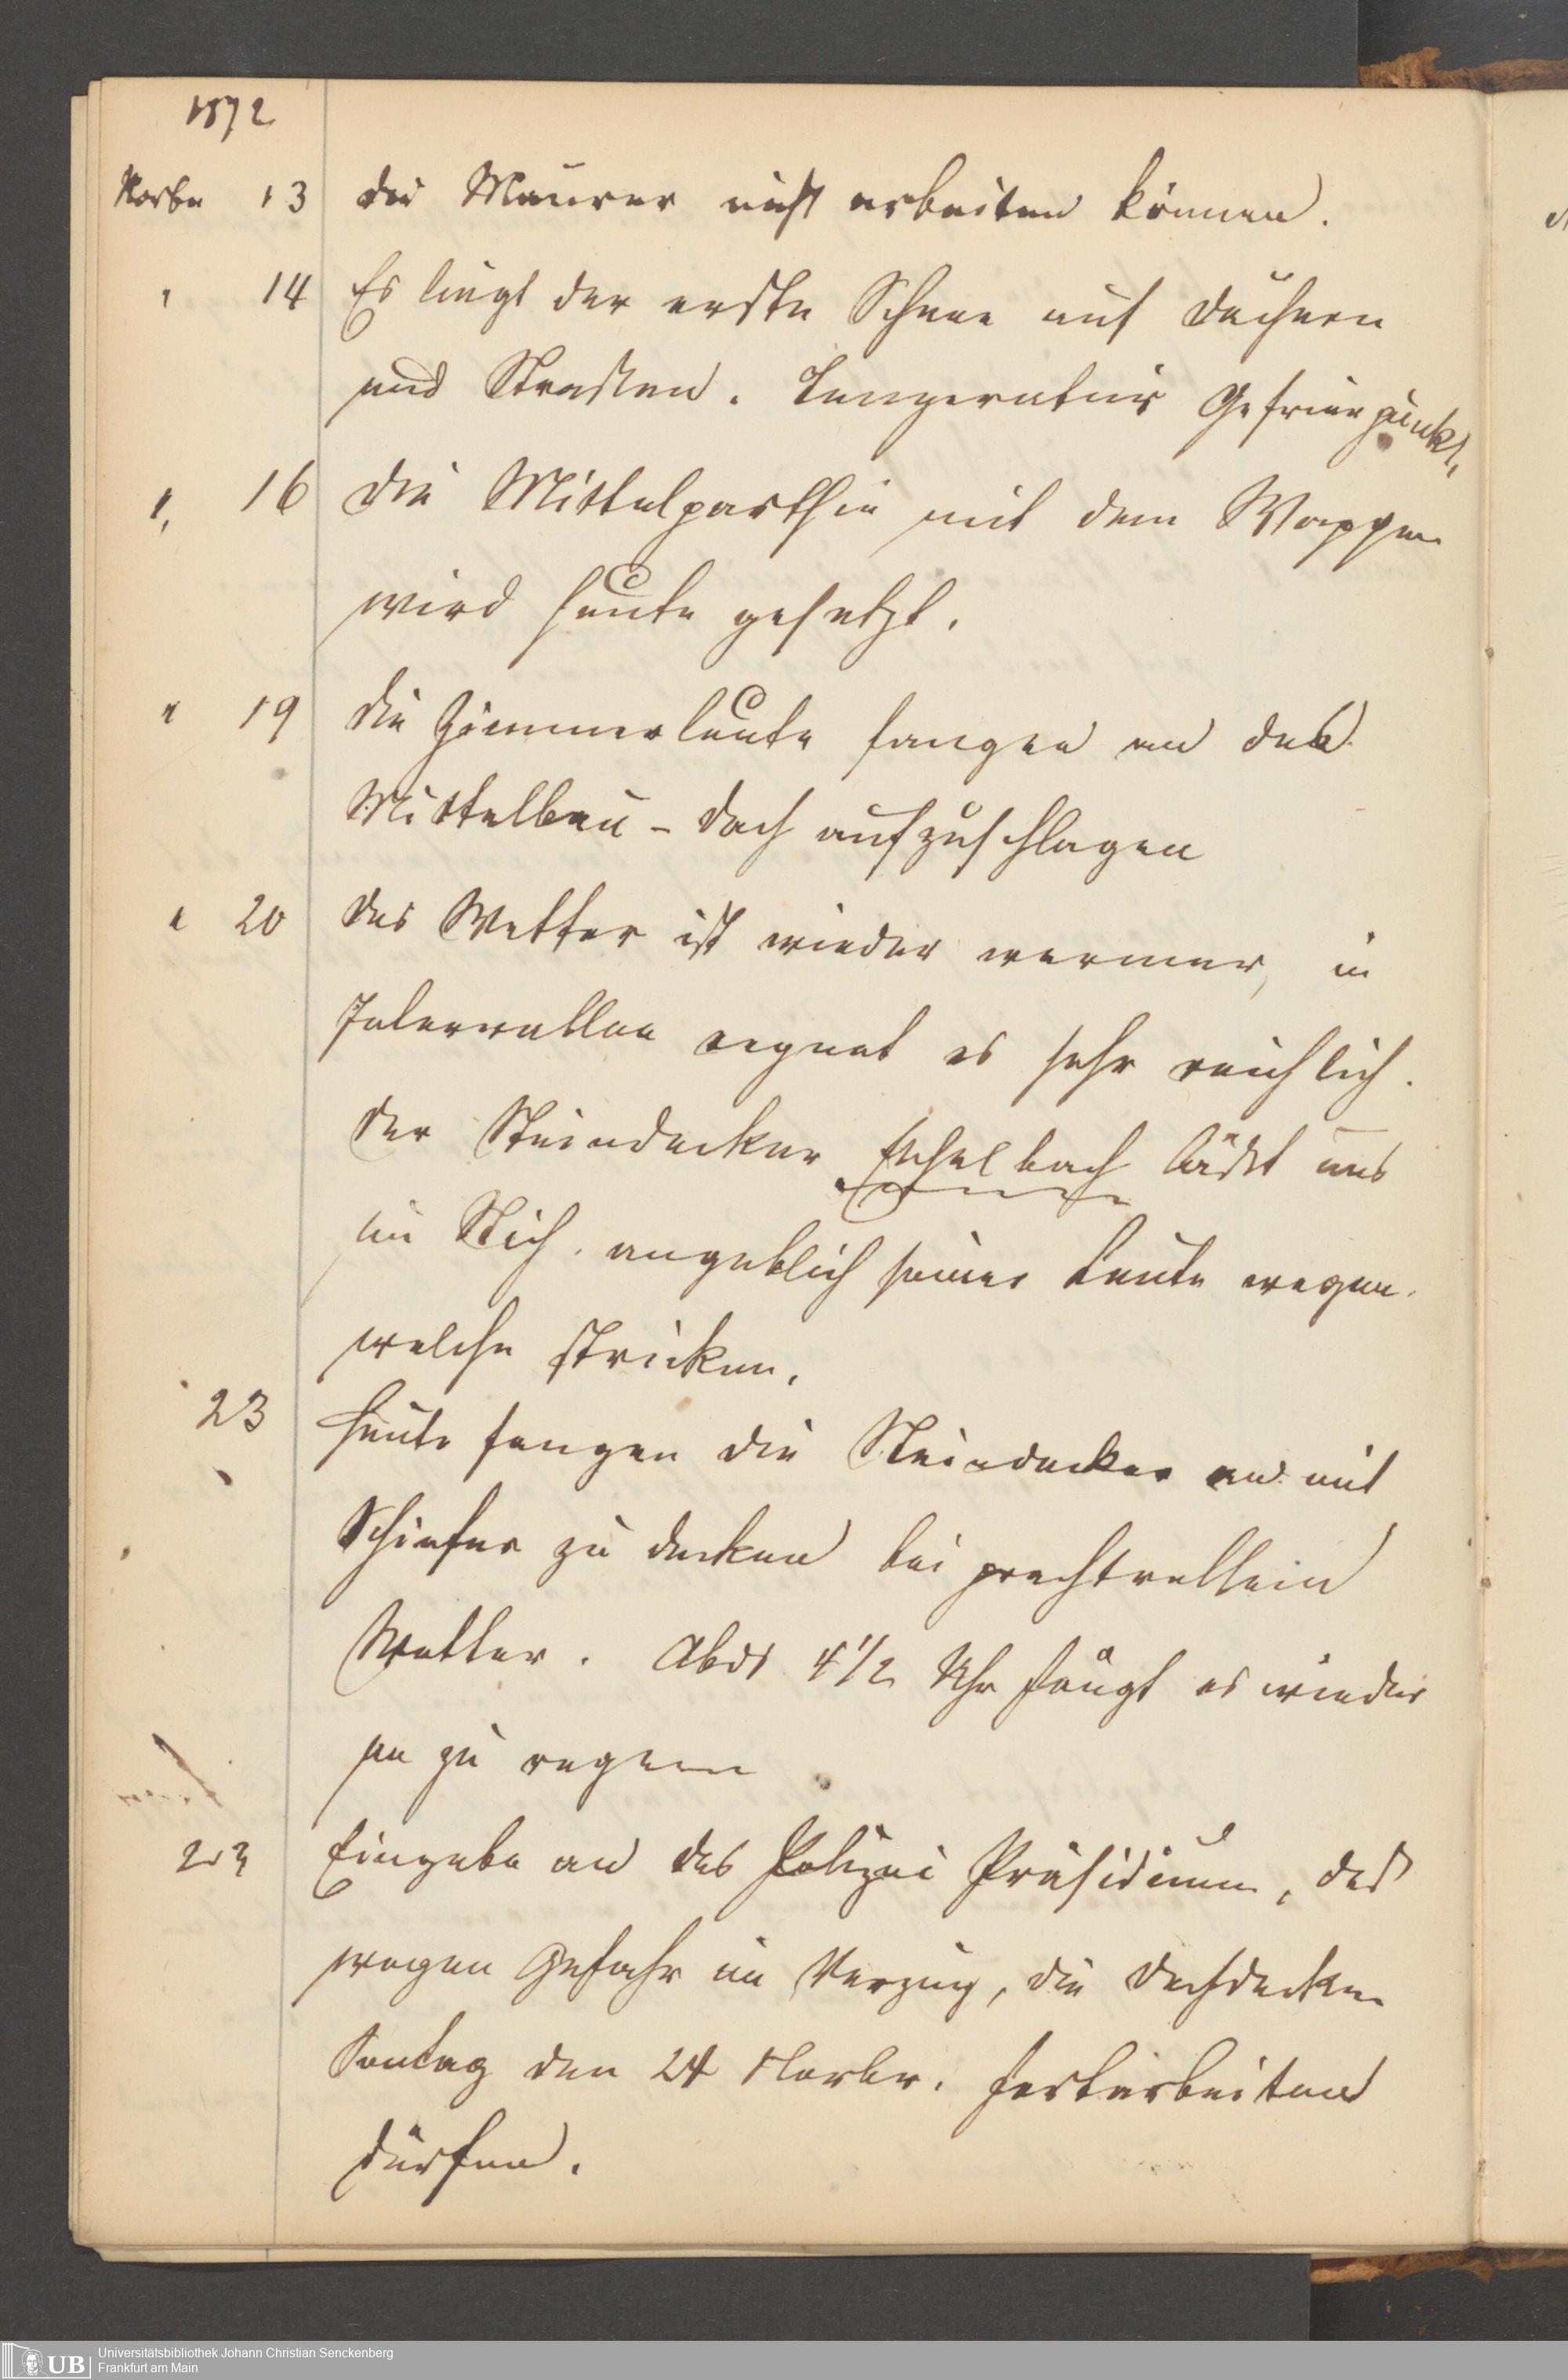 1872
Novbr 13 die Maurer nicht arbeiten können.
" 14 Es liegt der erste Schnee auf Dächern
und Straßen. Temperatur Gefrierpunkt,
" 16 Die Mittelparthie mit dem Wappen
wird heute gesetzt.
" 19 Die Zimmerleute fangen an das
Mittelbau-Dach aufzuschlagen
" 20 Das Wetter ist wieder warmer, in
Intervallen regnet es sehr reichlich.
Der Steindecker Eschelbach läßt uns
im Stich, angeblich seiner Leute wegen,
welche stricken.
23 Heute fangen die Steindecker an mit
Schiefer zu decken bei prachtvollem
Wetter. Abds 4 1/2 Uhr fängt es wieder
an zu regnen
23 Eingabe an das Polizei Präsidium, daß
wegen Gefahr im Verzug, die Dachdecker
Sontag den 24 Novbr. fortarbeiten
dürfen.
Universitätsbibliothek Johann Christian Senckenberg
Frankfurt am Main
UB